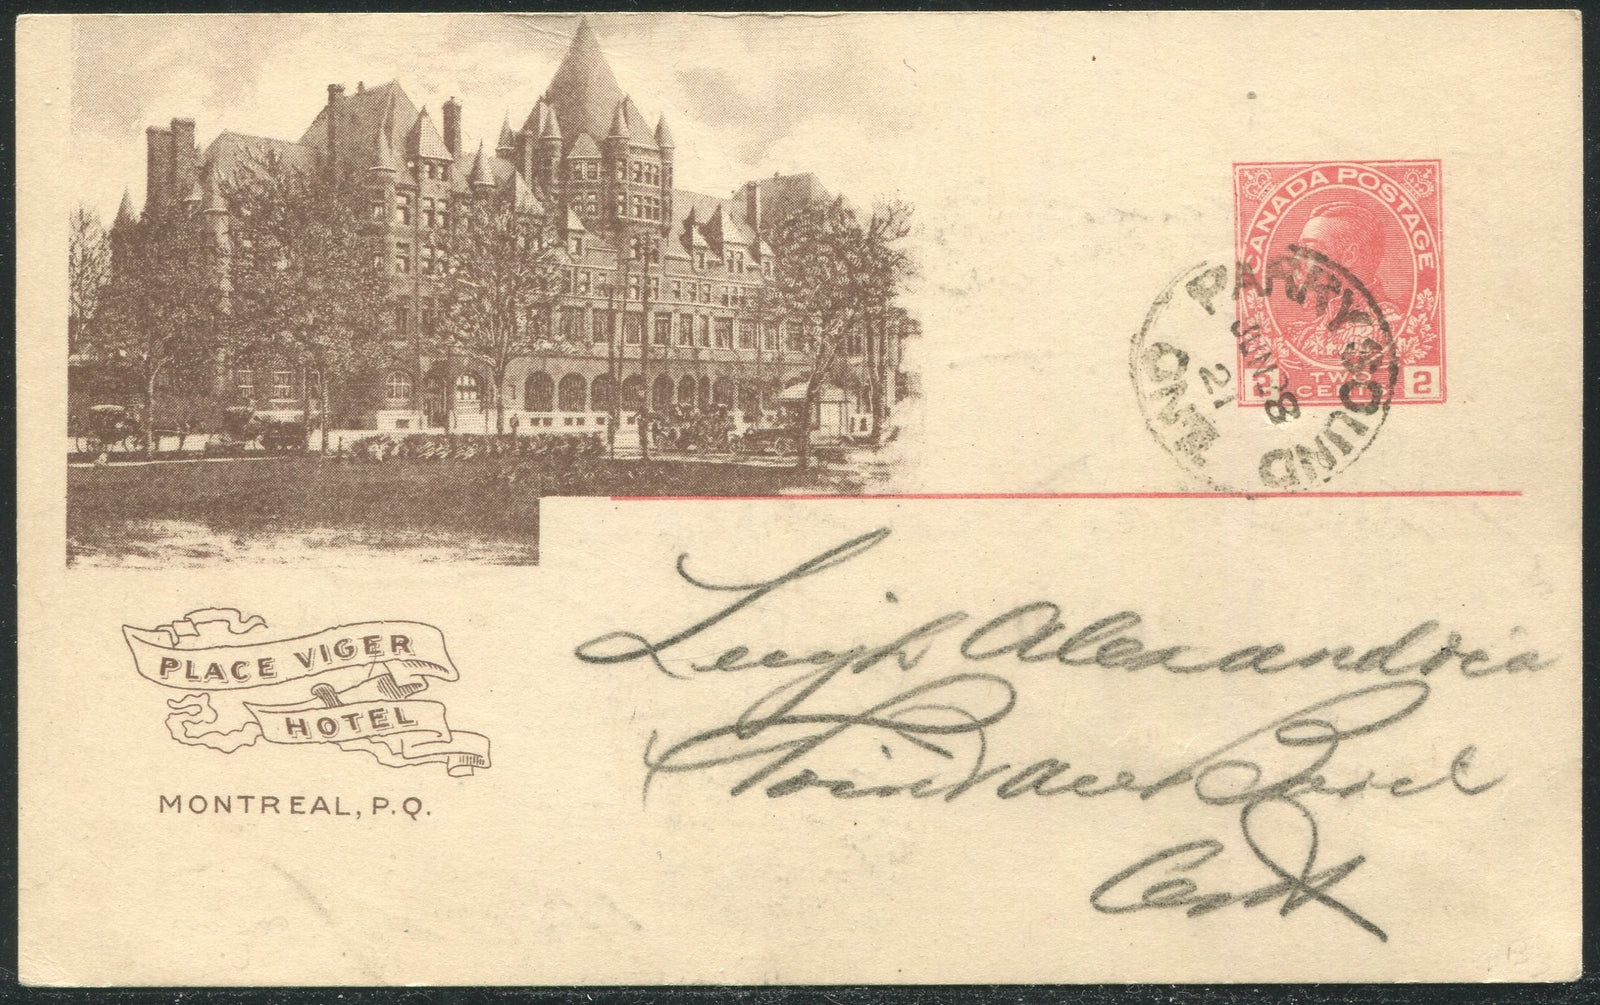 CANADA POSTAGE
2 TWO CENTS 2
PARRY SOUND
JUN 28
21
ONT
PLACE VIGER
HOTEL
MONTREAL, P.Q.
Leigh Alexandria
Point au Baril
Ont